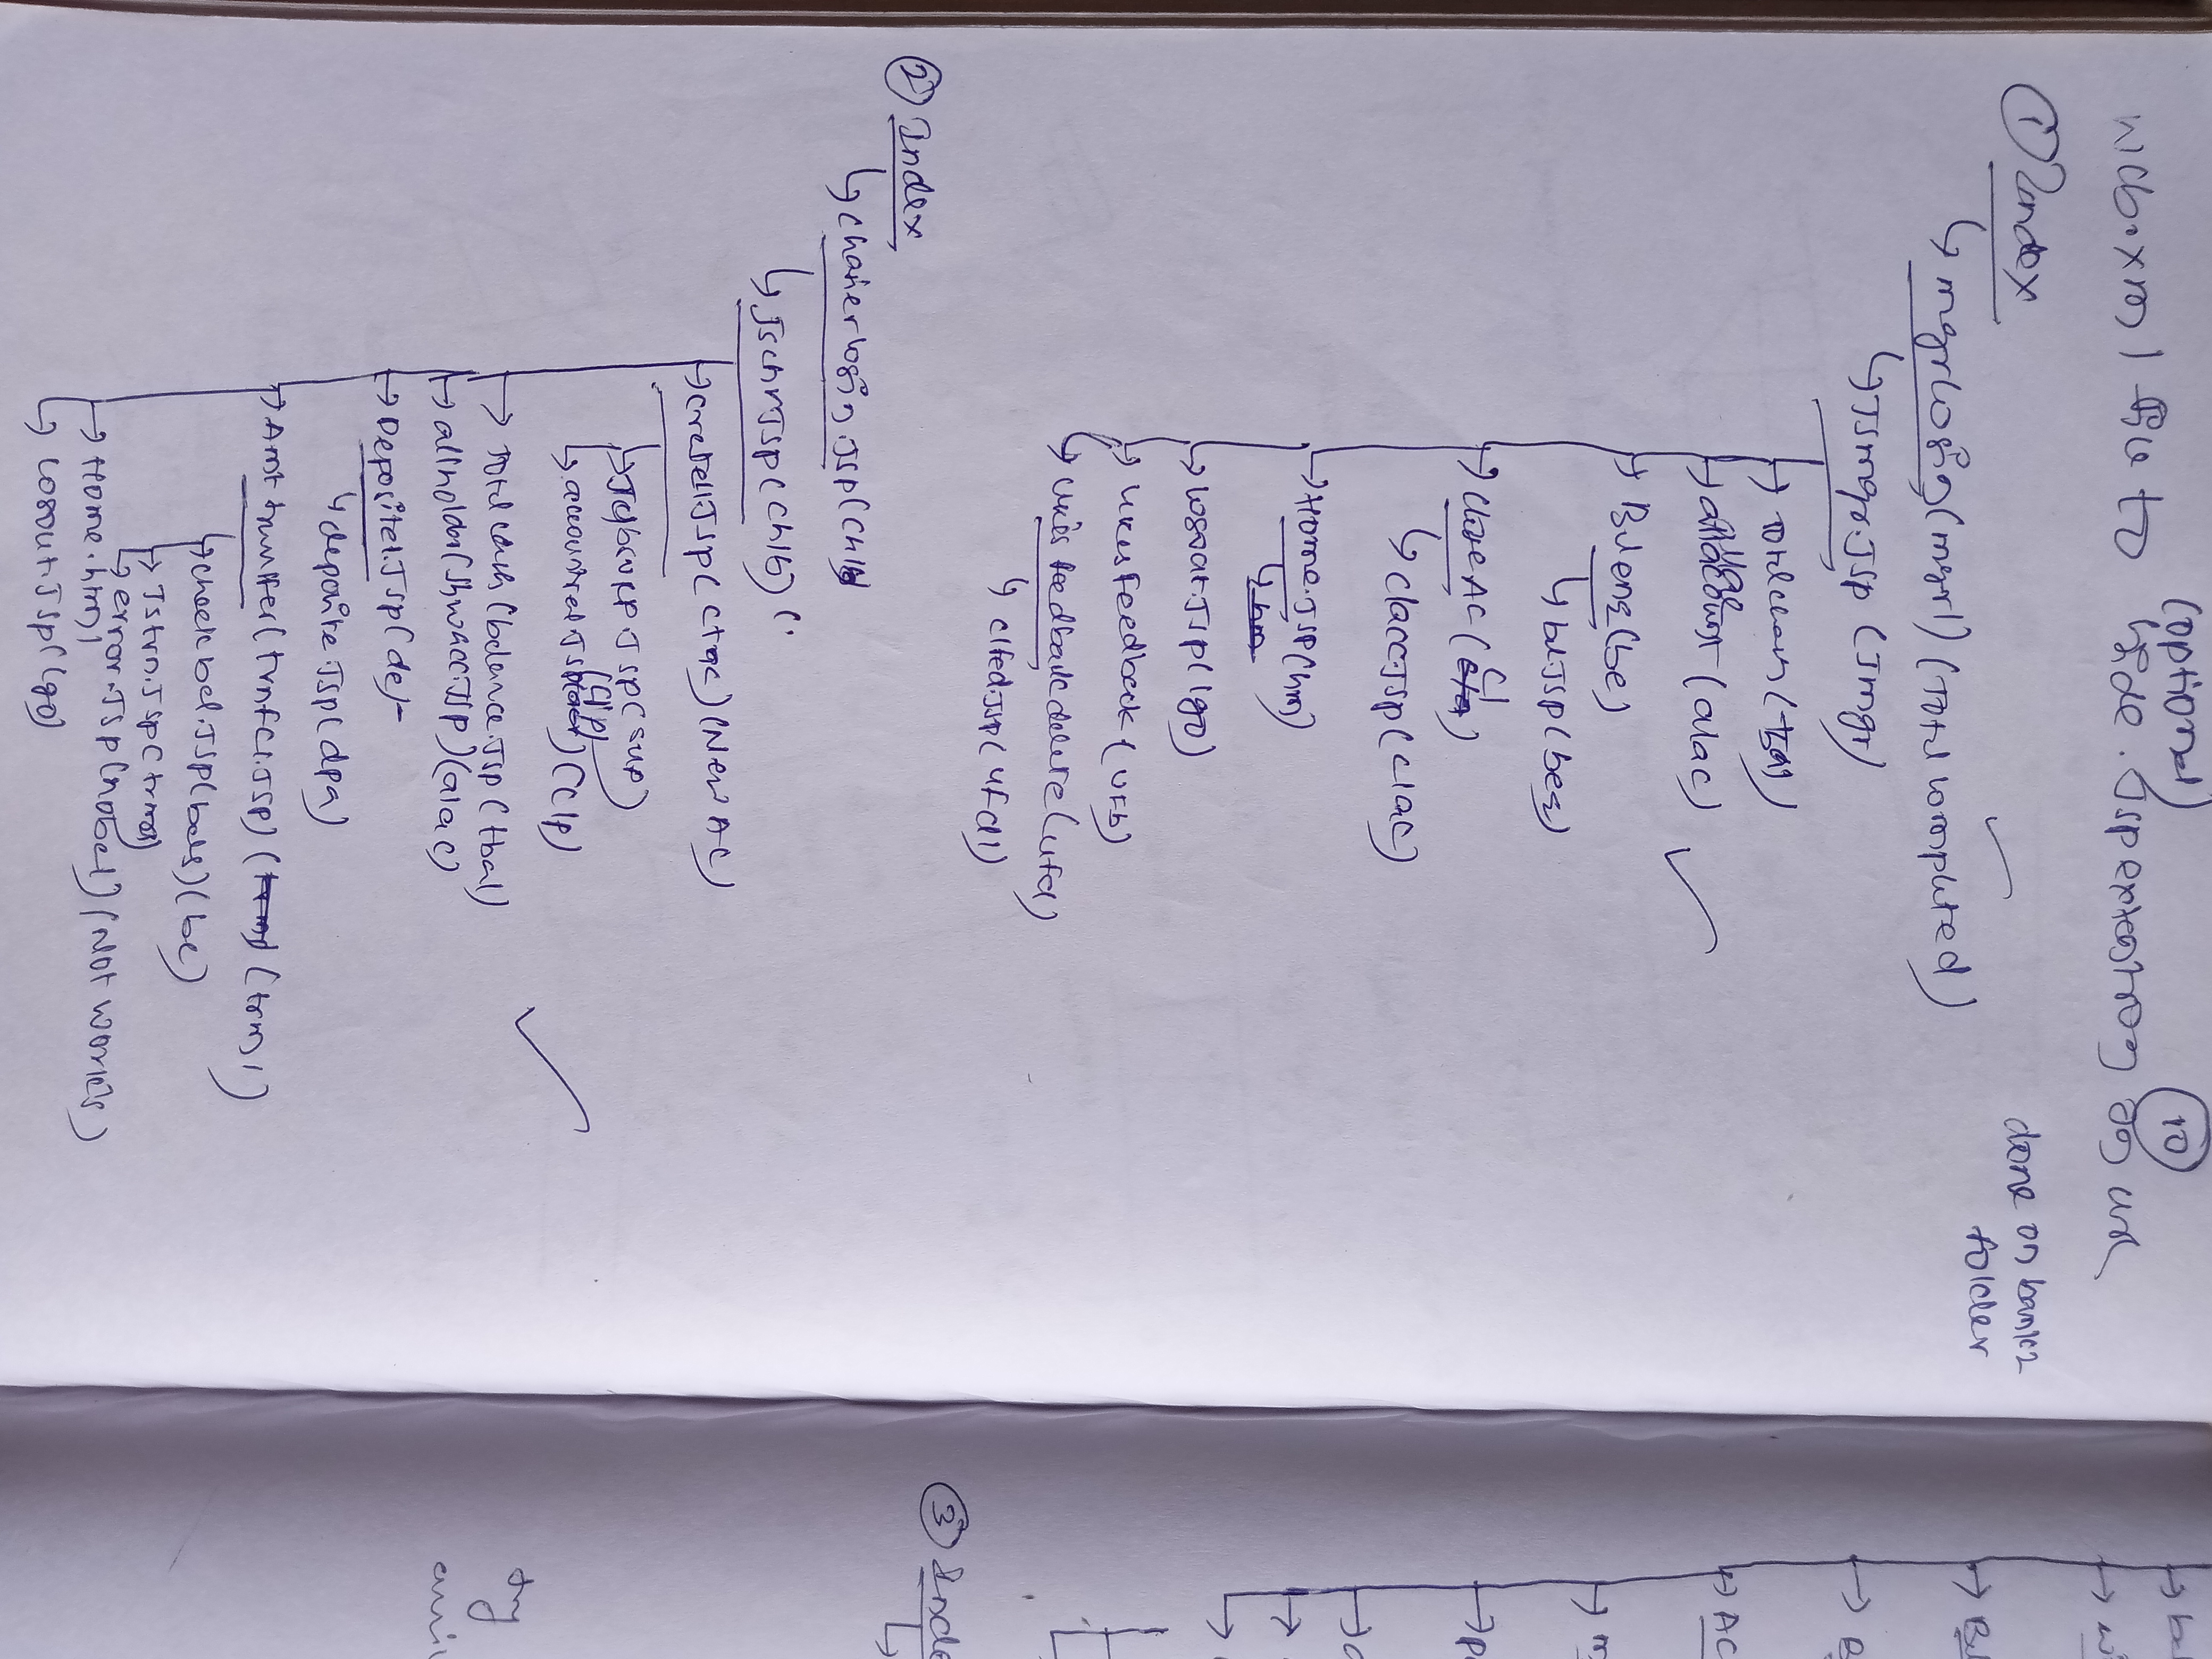 (optional)
10
web.xml file to hide .Jsp extention on url
① Index
done on bank2
folder
↳ mgrlogin (mgrl) (Total completed)
↳ Jsmgr.Jsp (Jmgr)
→ Totalcash
→ allacount (alac)
→ Bal enq (be)
↳ bal.Jsp (beq)
→ Close AC (cl)
↳ clacc.Jsp (clac)
→ Home.Jsp (hm)
↳ hm
→ logout.Jsp (lgo)
→ users Feedback (ufb)
→ users feedback delete (ufd)
↳ clfed.Jsp (ufd1)
② Index
↳ chasierlogin.Jsp
↳ Jschr.Jsp (chlb)
→ Jsp (ctac) (New AC)
Jsp (sup)
(clp)
Jsp (clp)
→ Total cash (balance.Jsp (tbal)
→ allholder (shwacc.Jsp) (alac)
→ Deposite1.Jsp (de)
↳ deposite.Jsp (dpa)
→ Amt transfer (trnfc1.Jsp) (trm1)
→ check bal.Jsp (bals) (be)
→ Jstrn.Jsp
→ error.Jsp (nobal) (Not works)
→ Home.html
→ logout.Jsp (lgo)
→ AC
③ Inde
try